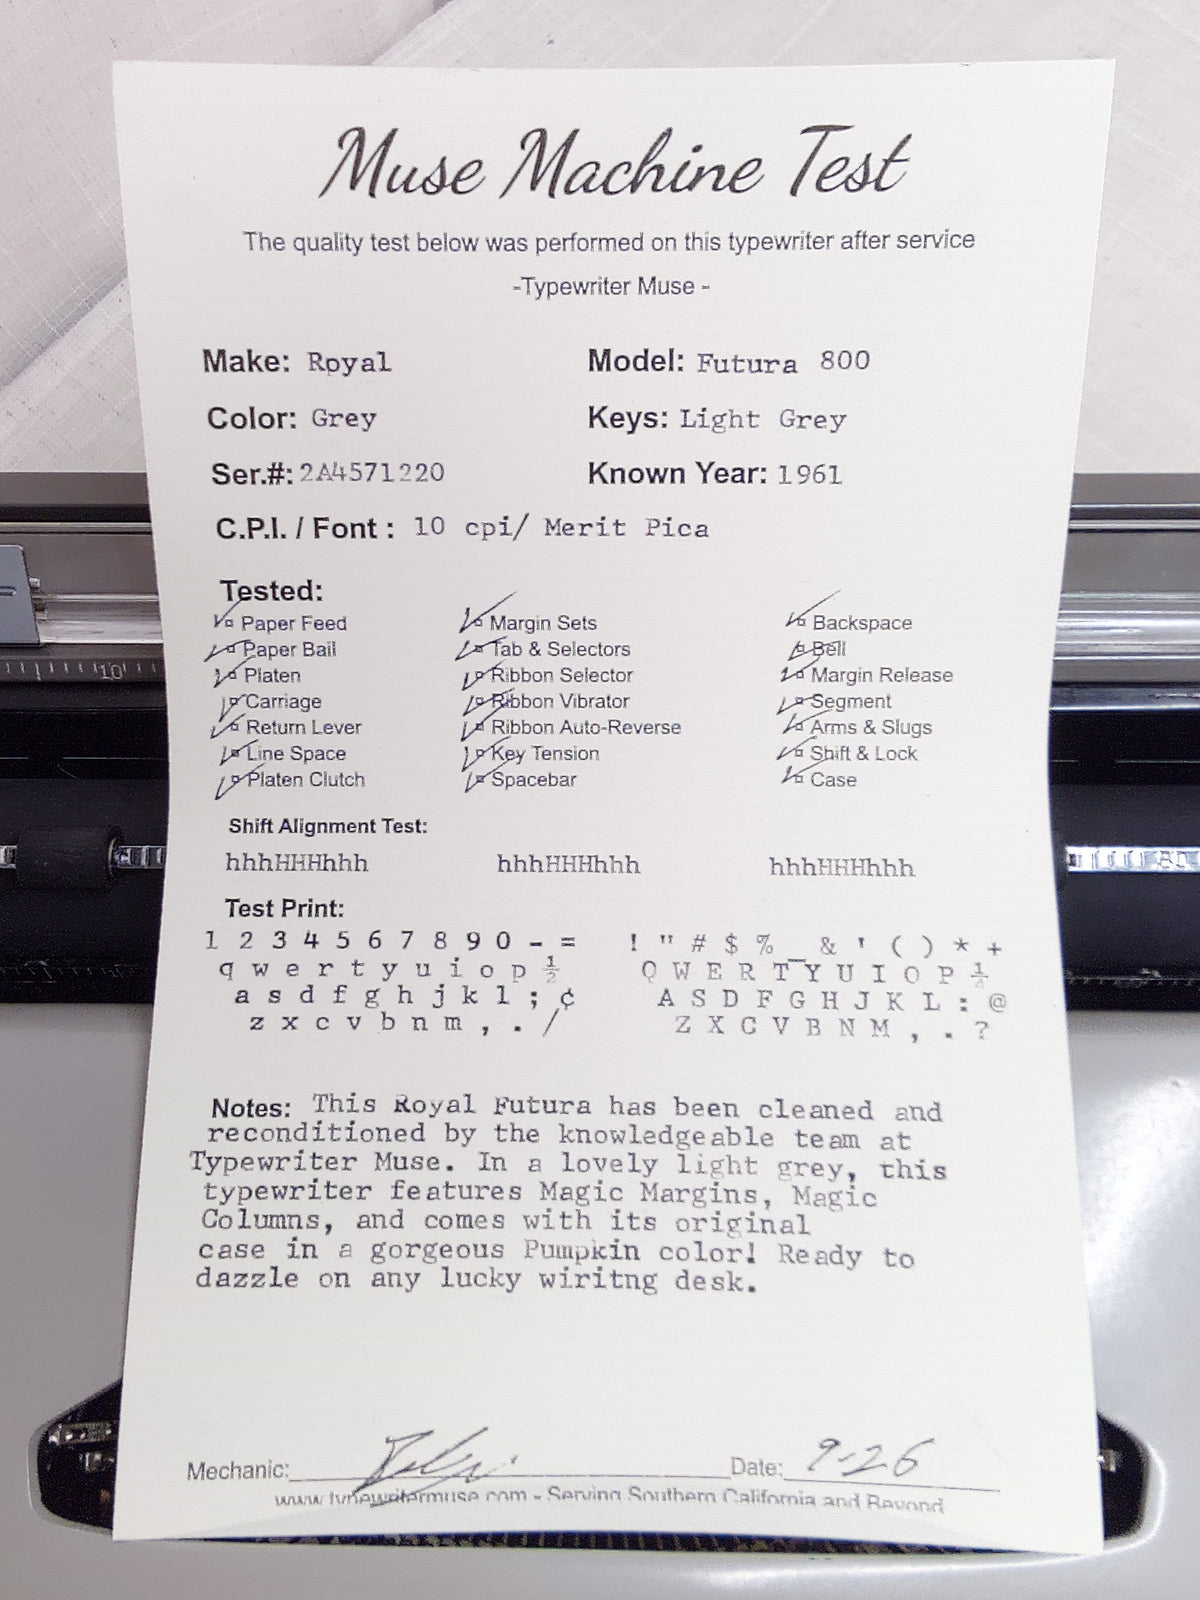 Muse Machine Test
The quality test below was performed on this typewriter after service
-Typewriter Muse -
Make: Royal Model: Futura 800
Color: Grey Keys: Light Grey
Ser.#: 2A4571220 Known Year: 1961
C.P.I. / Font : 10 cpi/ Merit Pica
Tested:
Paper Feed Margin Sets Backspace
Paper Bail Tab & Selectors Bell
Platen Ribbon Selector Margin Release
Carriage Ribbon Vibrator Segment
Return Lever Ribbon Auto-Reverse Arms & Slugs
Line Space Key Tension Shift & Lock
Platen Clutch Spacebar Case
Shift Alignment Test:
hhhHHHhhh hhhHHHhhh hhhHHHhhh
Test Print:
1 2 3 4 5 6 7 8 9 0 - = ! " # $ % _ & ' ( ) * +
q w e r t y u i o p ½ Q W E R T Y U I O P ¼
a s d f g h j k l ; ¢ A S D F G H J K L : @
z x c v b n m , . / Z X C V B N M , . ?
Notes: This Royal Futura has been cleaned and
reconditioned by the knowledgeable team at
Typewriter Muse. In a lovely light grey, this
typewriter features Magic Margins, Magic
Columns, and comes with its original
case in a gorgeous Pumpkin color! Ready to
dazzle on any lucky wiritng desk.
Mechanic: Date: 9-26
www.typewritermuse.com - Serving Southern California and Beyond
10